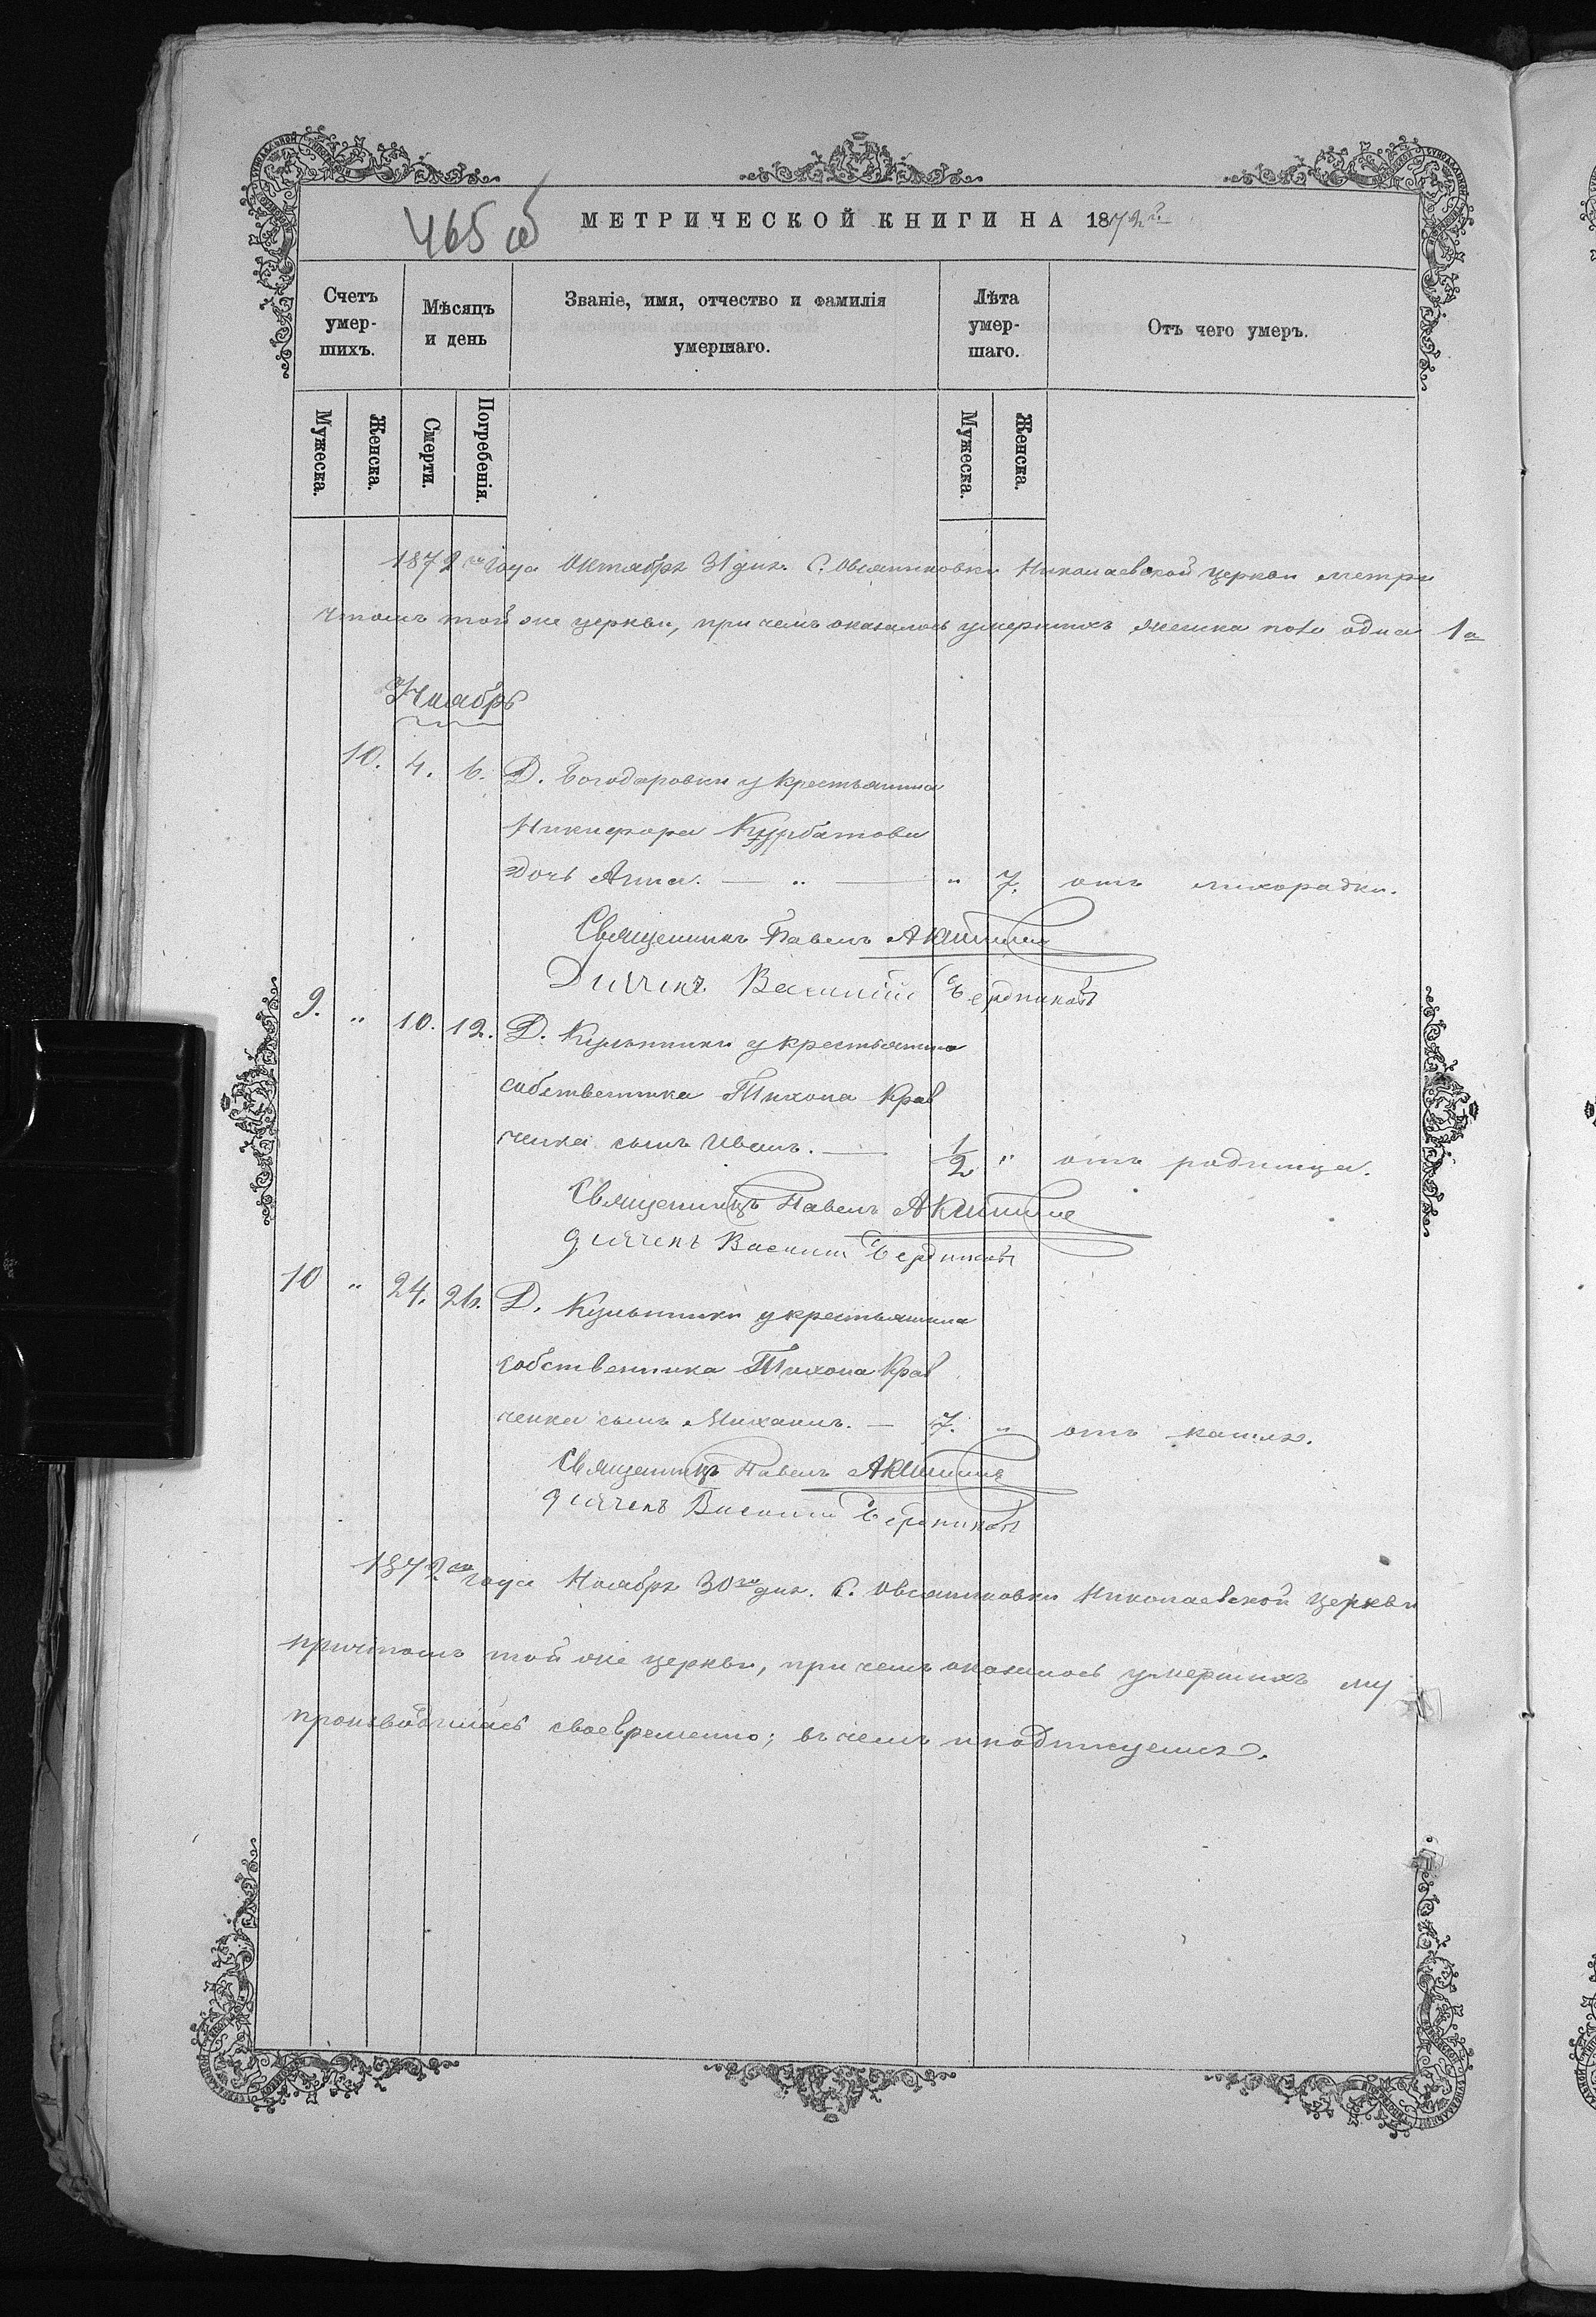 465 об
МЕТРИЧЕСКОЙ КНИГИ НА 1872 г.
Счетъ умер-шихъ.
Мѣсяцъ и день
Званіе, имя, отчество и фамилія умершаго.
Лѣта умер-шаго.
Отъ чего умеръ.
Мужеска.
Женска.
Смерти.
Погребенія.
Мужеска.
Женска.
1872 года Октября 31 дня. С. Овсянниковки Николаевской церкви метри
чтомъ той же церкви, при чемъ оказалось умершихъ женска пола одна 1а
Ноябрь
10. 4. 6. Д. Богодаровки у крестьянина
Никифора Курбатова
дочь Анна. — „ — „ 7. отъ лихорадки.
Священникъ Павелъ
Дьячекъ Василій Бердников
9. „ 10. 12. Д. у крестьянина
собственника Тихона Крав
ченка сынъ Иванъ. — 1/2 „ отъ родимца.
Священникъ Павелъ
Дьячекъ Василий Бердников
10 „ 24. 26. Д. у крестьянина
собственника Тихона Крав
ченка сынъ Михаилъ. — 7. „ отъ кашля.
Священникъ Павелъ
Дьячекъ Василий Бердников
1872 го года Ноября 30 го дня. С. Овсянниковки Николаевской церкви
причтомъ той же церкви, при чемъ оказалось умершихъ му
производилась своевременно; въ чемъ и подписуемся.